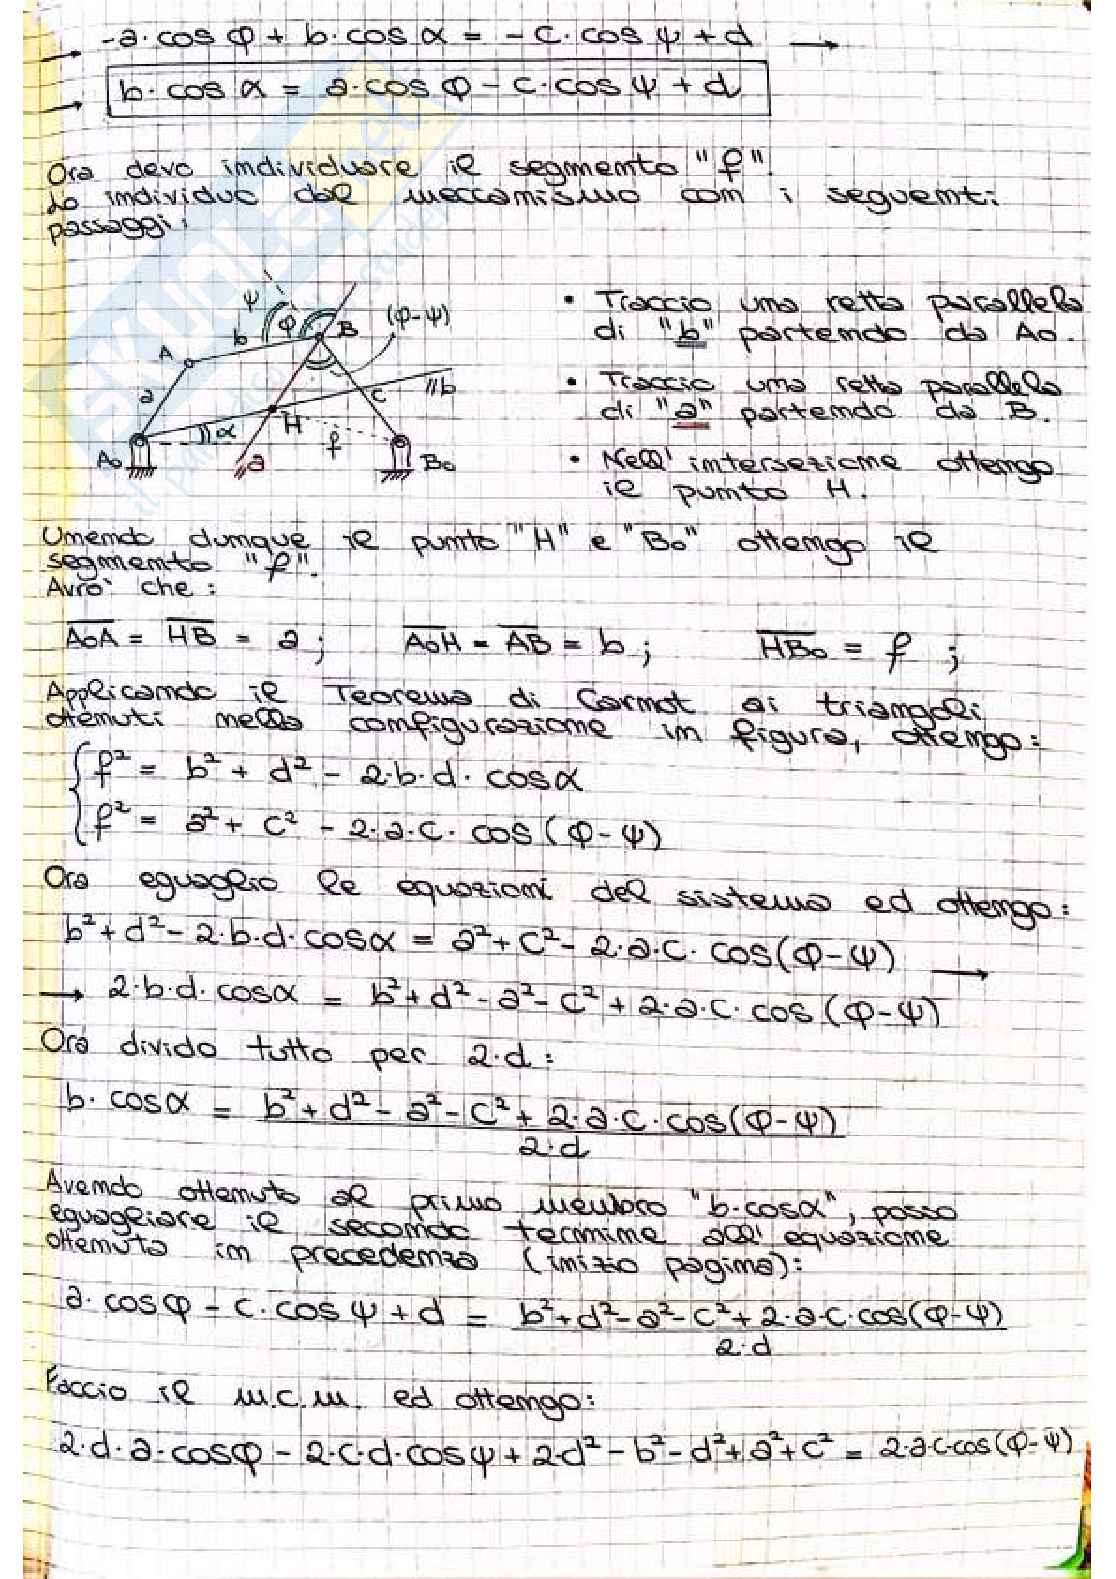 → -a·cos φ + b·cos α = -c·cos ψ + d →
→ b·cos α = a·cos φ - c·cos ψ + d
Ora devo individuare il segmento "f".
Lo individuo dal meccanismo con i seguenti
passaggi:
ψ
b
φ
B
(φ-ψ)
A
a
c
//b
//α
H
f
A₀
//a
B₀
• Traccio una retta parallela
di "b" partendo da A₀.
• Traccio una retta parallela
di "a" partendo da B.
• Nell'intersezione ottengo
il punto H.
Unendo dunque il punto "H" e "B₀" ottengo il
segmento "f".
Avrò che:
A₀A = HB = a; A₀H = AB = b; HB₀ = f ;
Applicando il Teorema di Carnot ai triangoli
ottenuti nella configurazione in figura, ottengo:
f² = b² + d² - 2·b·d·cosα
f² = a² + c² - 2·a·c·cos(φ-ψ)
Ora eguaglio le equazioni del sistema ed ottengo:
b²+d²-2·b·d·cosα = a²+c²-2·a·c·cos(φ-ψ) →
→ 2·b·d·cosα = b²+d²-a²-c²+2·a·c·cos(φ-ψ)
Ora divido tutto per 2·d:
b·cosα = b²+d²-a²-c²+2·a·c·cos(φ-ψ)
2·d
Avendo ottenuto al primo membro "b·cosα", posso
eguagliare il secondo termine all'equazione
ottenuta in precedenza (inizio pagina):
a·cosφ - c·cosψ + d = b²+d²-a²-c²+2·a·c·cos(φ-ψ)
2·d
Faccio il m.c.m. ed ottengo:
2·d·a·cosφ - 2·c·d·cosψ + 2d² - b² - d² + a² + c² = 2·a·c·cos(φ-ψ)